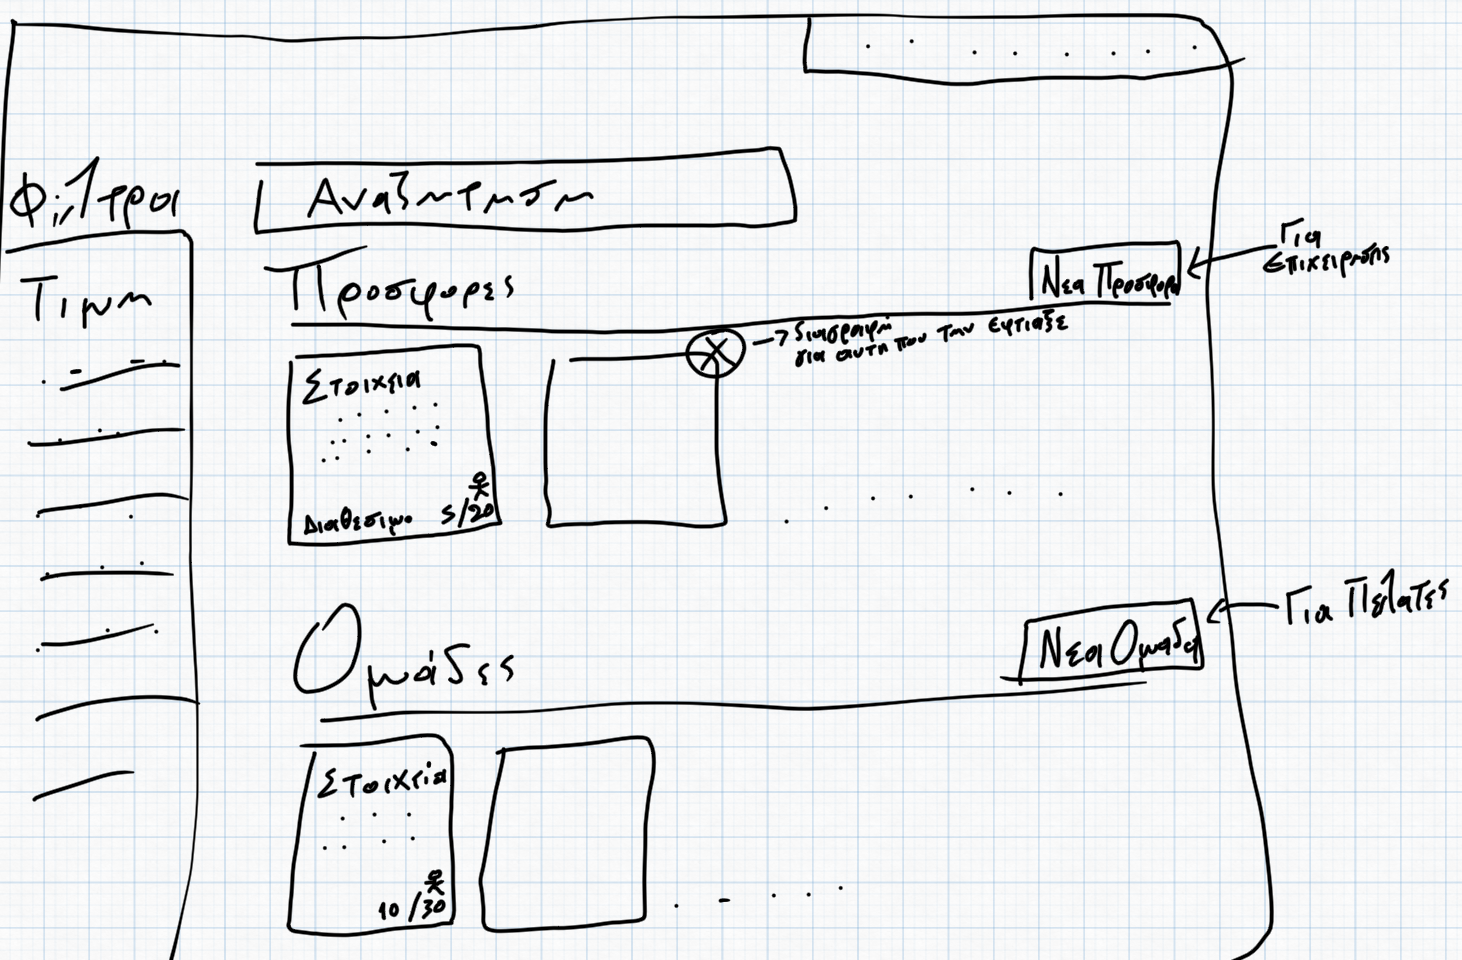 Φίλτροι
Αναζητηση
Τιμη
Προσφορες
Νεα Προσφορα
Για
επιχειρησης
διαγραφη
για αυτη που την εφτιαξε
Στοιχεια
Διαθεσιμο 5/20
Ομάδες
Νεα Ομαδα
Για Πελατες
Στοιχεία
10/30